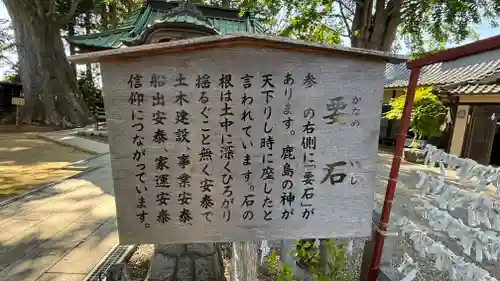 要石
かなめ
いし
参　の右側に「要石」が
あります。鹿島の神が
天下りし時に座したと
言われています。石の
根は土中に深くひろがり
揺るぐこと無く安泰で
土木建設、事業安泰
船出安泰　家運安泰
信仰につながっています。